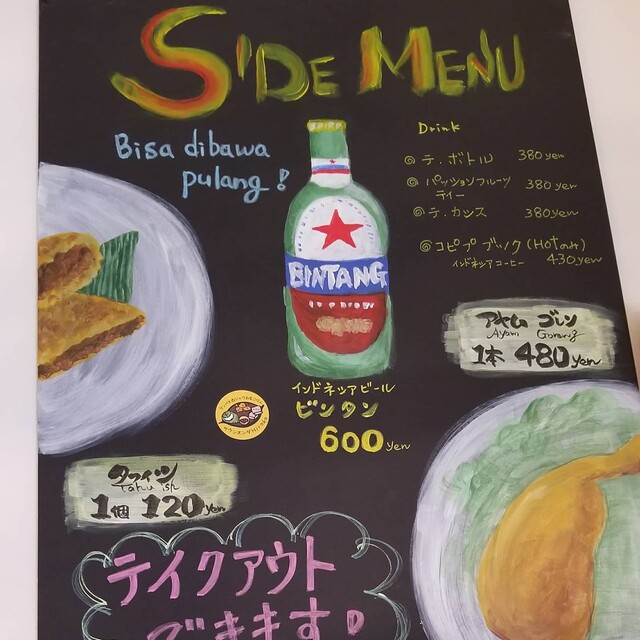 SIDE MENU
Bisa dibawa
pulang!
Drink
◎テ.ボトル 380yen
◎パッションフルーツ
ティー 380yen
◎テ.カンス 380yen
◎コピブブック(Hot only)
インドネシアコーヒー 430yen
BINTANG
インドネシアビール
ビンタン
600yen
アヤム ゴレン
Ayam Goreng
1本 480yen
タフイシ
Tahu ish
1個 120yen
テイクアウト
できます!